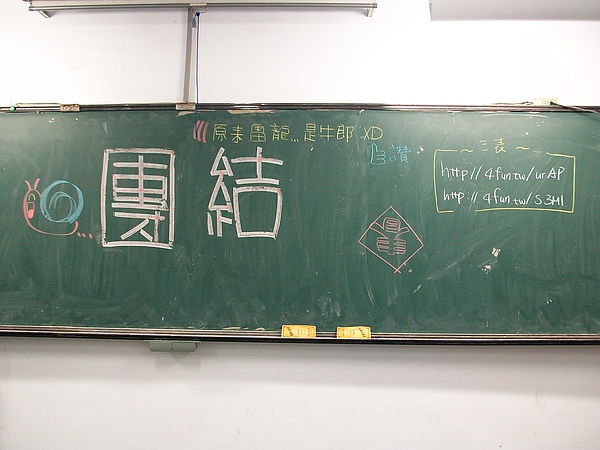 原來雷龍...是牛郎 XD
團結
讚
~三表~
http://4fun.tw/urAP
http://4fun.tw/S3MI